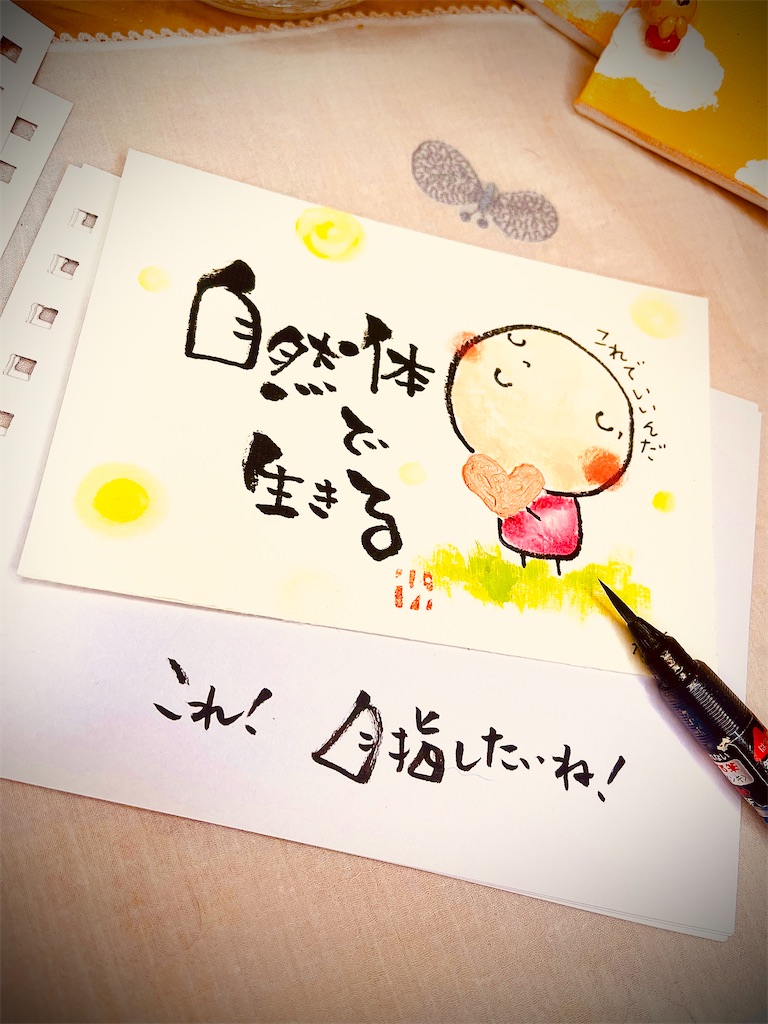 自然体
で
生きる
これでいいんだ
これ! 目指したいね!